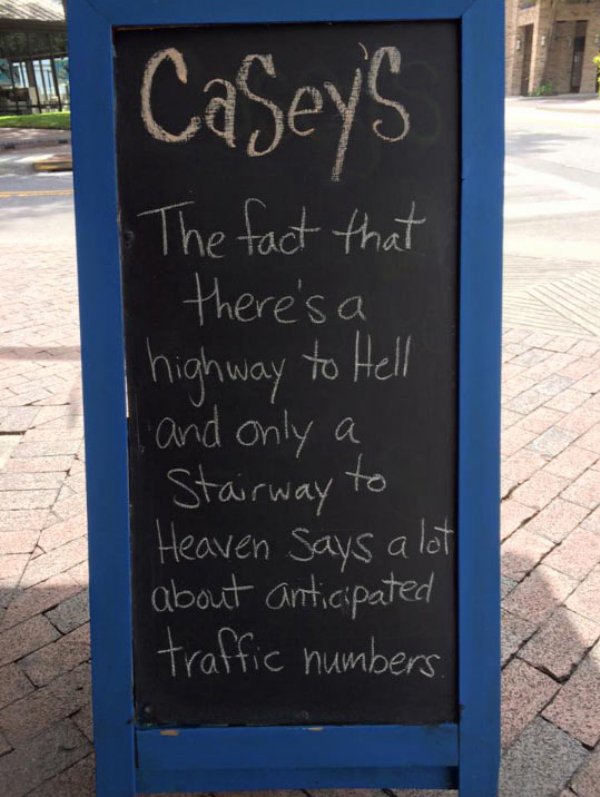 Casey's
The fact that
there's a
highway to Hell
and only a
Stairway to
Heaven Says a lot
about anticipated
traffic numbers.